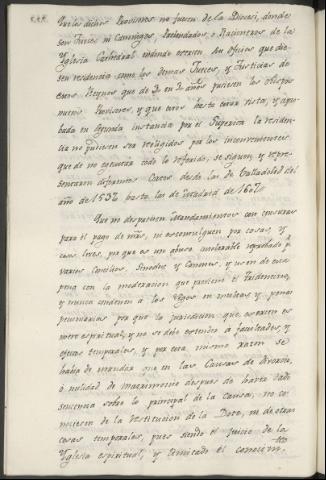 que los dichos Provisores no fuesen de la Diocesi, donde
sean Jueces ni Canonigos, Prebendados, o Racioneros de la
Yglesia Cathedral adonde exercen su oficio y que die-
sen residencia como los demas Jueces, y Justicias de
estos Reynos que de 3 en 3 años pusiesen los obispos
nuevos Provisores, y que estos hasta estar vista, y apro-
bada en segunda instancia por el Superior la residen-
cia no pudiesen ser reelegidos por los inconvenientes
que de no executar todo lo referido, se siguen, y repre-
sentaron diferentes Cortes desde las de Valladolid del
año de 1537 hasta las de Madrid de 1607
Que no despachen Mandamientos con censuras
para el pago de mrs, ni escomulguen por cosas, y
casos leves, por que es un abuso intolerable reprobado p.r
varios Concilios, Sinodos, y Canones, y usen de esta
pena con la moderacion que previene el Tridentino,
y nunca condenen a los Legos en multas, y penas
pecuniarias por que la jurisdicion que exercen es
mere espiritual, y no se debe extender a facultades, y
efectos temporales, y por esta misma razon se
habia de mandar que en las Causas de divorcio,
o nulidad de matrimonio despues de haver dado
sentencia sobre lo principal de la causa, no co-
nociesen de la restitucion de la Dote, ni de otras
cosas temporales, pues siendo el juicio de la
Yglesia espiritual, y limitado el conocim.to